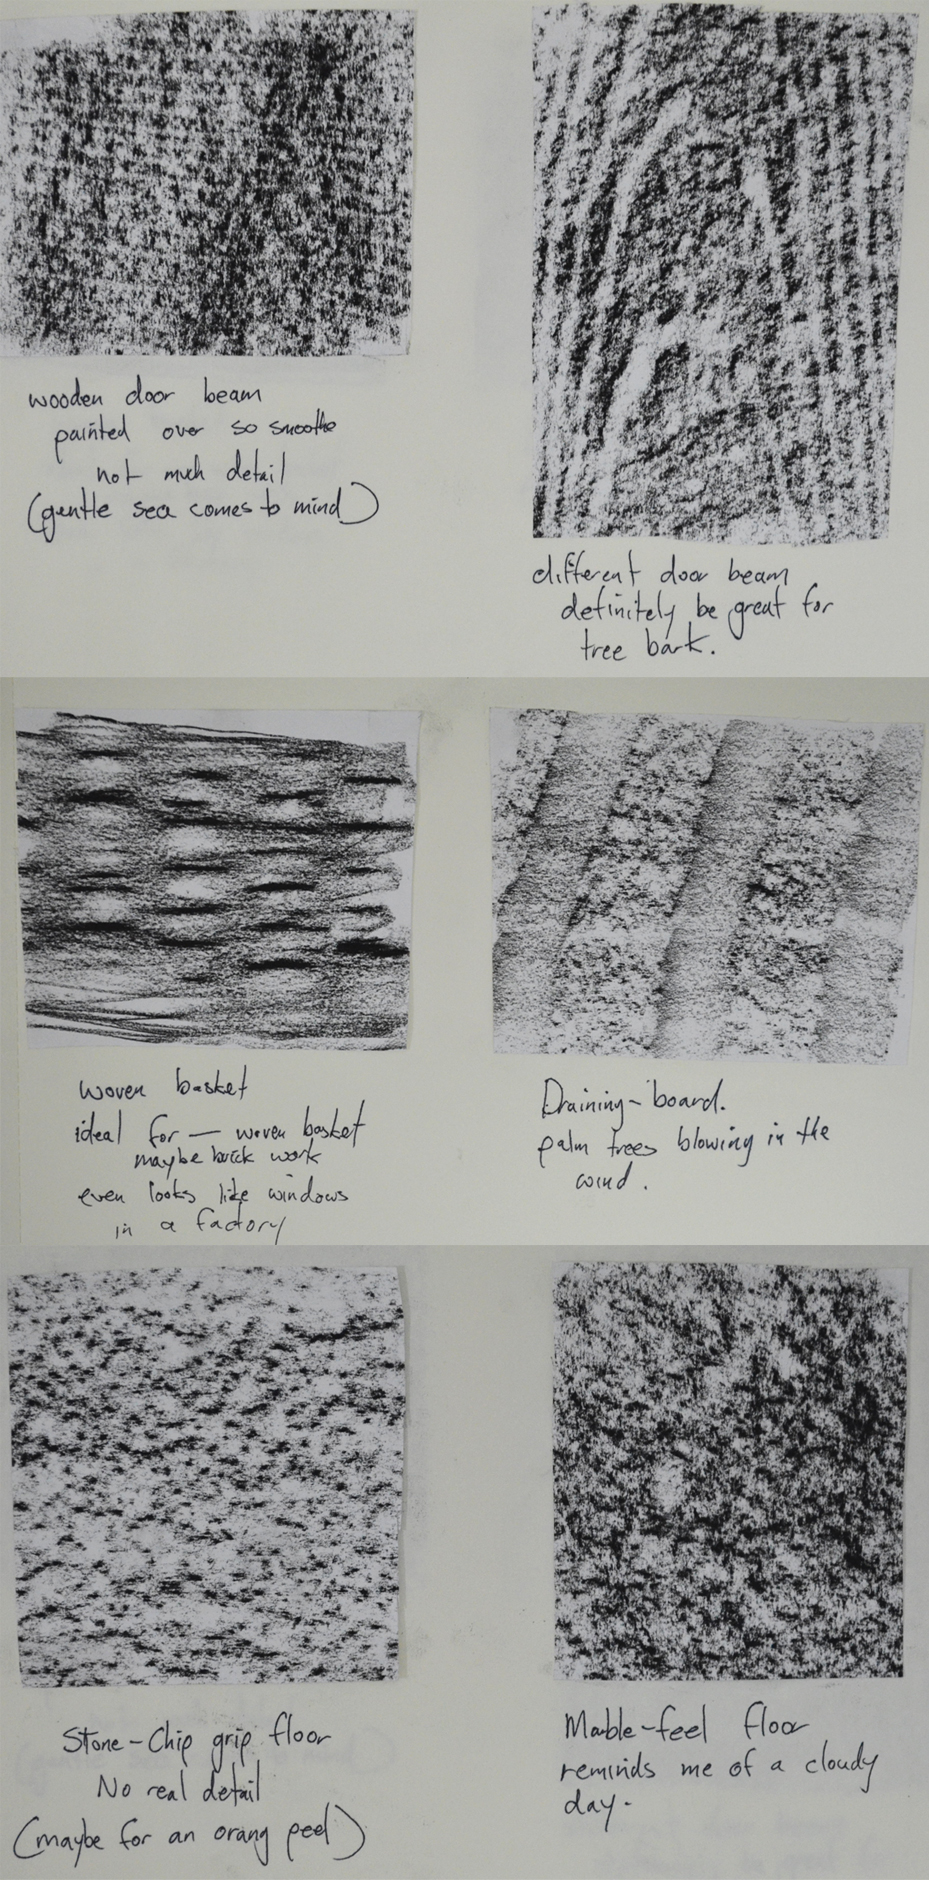 wooden door beam
painted over so smoothe
not much detail
(gentle sea comes to mind)
different door beam
definitely be great for
tree bark.
woven basket
ideal for — woven basket
maybe brick work
even looks like windows
in a factory
Draining-board.
palm trees blowing in the
wind.
Stone-Chip grip floor
No real detail
(maybe for an orang peel)
Marble-feel floor
reminds me of a cloudy
day.